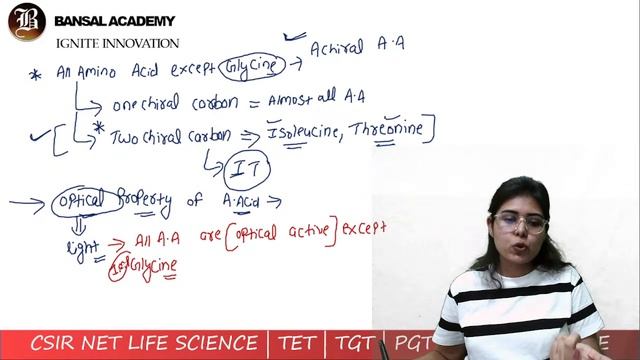 BANSAL ACADEMY
IGNITE INNOVATION
✓ Achiral A.A
* All Amino Acid except Glycine →
→ one chiral carbon = Almost all A.A
✓ [ * Two chiral carbon ⇒ Isoleucine, Threonine ]
IT
→ Optical Property of A.Acid ⇒
light → All A.A are [optical active] except
Glycine
CSIR NET LIFE SCIENCE | TET | TGT | PGT
E